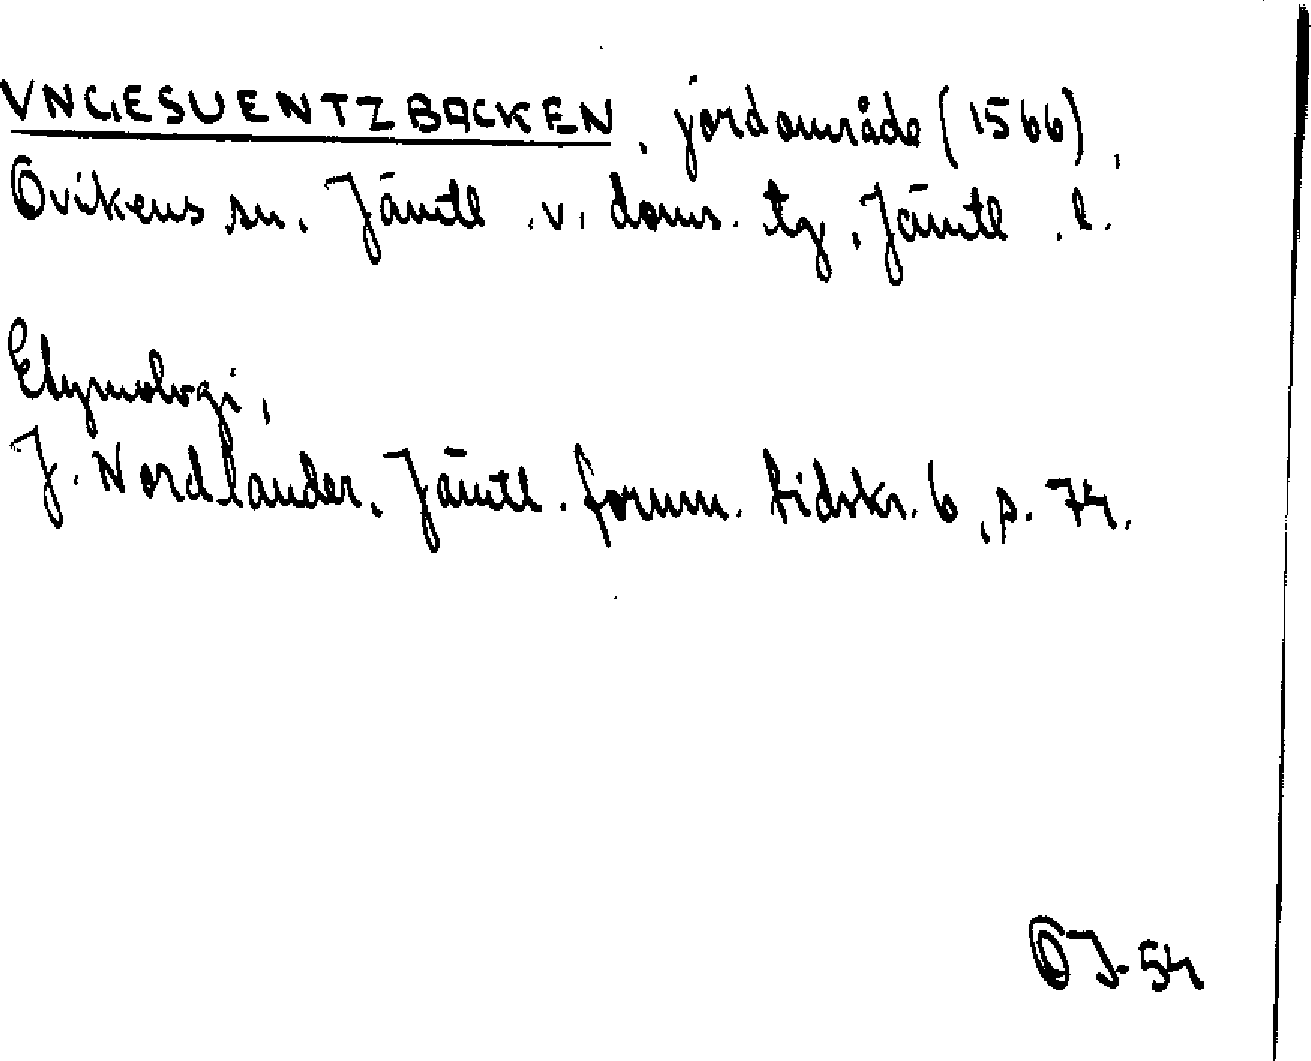 VNGESUENTZBACKEN, jordområde (1566),
Ovikens sn, Jämtl. v. doms. tg, Jämtl. l.
Etymologi,
J. Nordlander, Jämtl. fornm. tidskr. 6, s. 74.
OJ-54